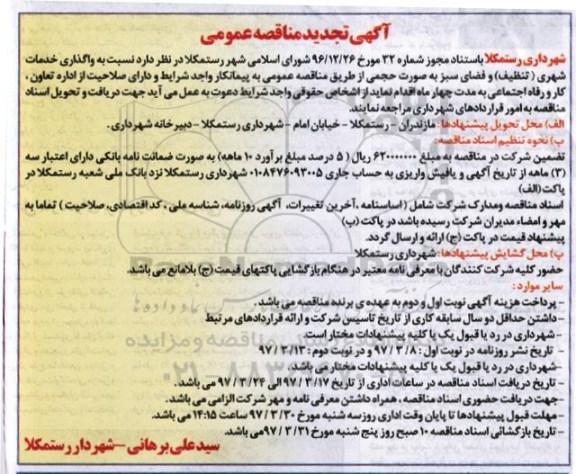 آگهی تجدید مناقصه عمومی
شهرداری رستمکلا باستناد مجوز شماره ۳۲ مورخ ۹۶/۱۲/۲۶ شورای اسلامی شهر رستمکلا در نظر دارد نسبت به واگذاری خدمات
شهری ( تنظیف) و فضای سبز به صورت حجمی از طریق مناقصه عمومی به پیمانکار واجد شرایط و دارای صلاحیت از اداره تعاون ،
کار و رفاه اجتماعی به مدت چهار ماه اقدام نماید از اشخاص حقوقی واجد شرایط دعوت به عمل می آید جهت دریافت و تحویل اسناد
مناقصه به امور قراردادهای شهرداری مراجعه نمایند.
الف) محل تحویل پیشنهادها: مازندران - رستمکلا - خیابان امام - شهرداری رستمکلا - دبیرخانه شهرداری.
ب) نحوه تنظیم اسناد مناقصه:
تضمین شرکت در مناقصه به مبلغ ۶۲۰۰۰۰۰۰۰ ریال ( ۵ درصد مبلغ برآورد ۱۰ ماهه) به صورت ضمانت نامه بانکی دارای اعتبار سه
(۳) ماهه از تاریخ آگهی و یا فیش واریزی به حساب جاری ۰۱۰۸۴۷۶۰۹۳۰۰۵ شهرداری رستمکلا نزد بانک ملی شعبه رستمکلا در
پاکت (الف)
اسناد مناقصه ومدارک شرکت شامل ( اساسنامه ،آخرین تغییرات، آگهی روزنامه، شناسه ملی ، کد اقتصادی، صلاحیت ) تماما به
مهر و امضاء مدیران شرکت رسیده باشد در پاکت (ب)
پیشنهاد قیمت در پاکت (ج) ارائه و ارسال گردد.
پ) محل گشایش پیشنهادها: شهرداری رستمکلا
حضور کلیه شرکت کنندگان با معرفی نامه معتبر در هنگام بازگشایی پاکتهای قیمت (ج) بلامانع می باشد.
سایر موارد :
- پرداخت هزینه آگهی نوبت اول و دوم به عهده ی برنده مناقصه می باشد.
-داشتن حداقل دو سال سابقه کاری از تاریخ تاسیس شرکت و ارائه قراردادهای مرتبط
- شهرداری در رد یا قبول یک یا کلیه پیشنهادات مختار است.
- تاریخ نشر روزنامه در نوبت اول : ۹۷/۳/۸ و در نوبت دوم : ۹۷/۳/۱۳
-شهرداری در رد یا قبول یک یا کلیه پیشنهادات مختار می باشد.
- تاریخ دریافت اسناد مناقصه در ساعات اداری از تاریخ ۹۷/۳/۱۷ الی ۹۷/۳/۲۴ می باشد.
-جهت دریافت حضوری اسناد مناقصه ، همراه داشتن معرفی نامه و مهر شرکت الزامی می باشد.
-مهلت قبول پیشنهادها تا پایان وقت اداری روزسه شنبه مورخ ۹۷/۳/۳۰ ساعت ۱۴:۱۵ می باشد.
- تاریخ بازگشائی اسناد مناقصه ۱۰ صبح روز پنج شنبه مورخ ۹۷/۳/۳۱ می باشد.
سیدعلی برهانی - شهردار رستمکلا